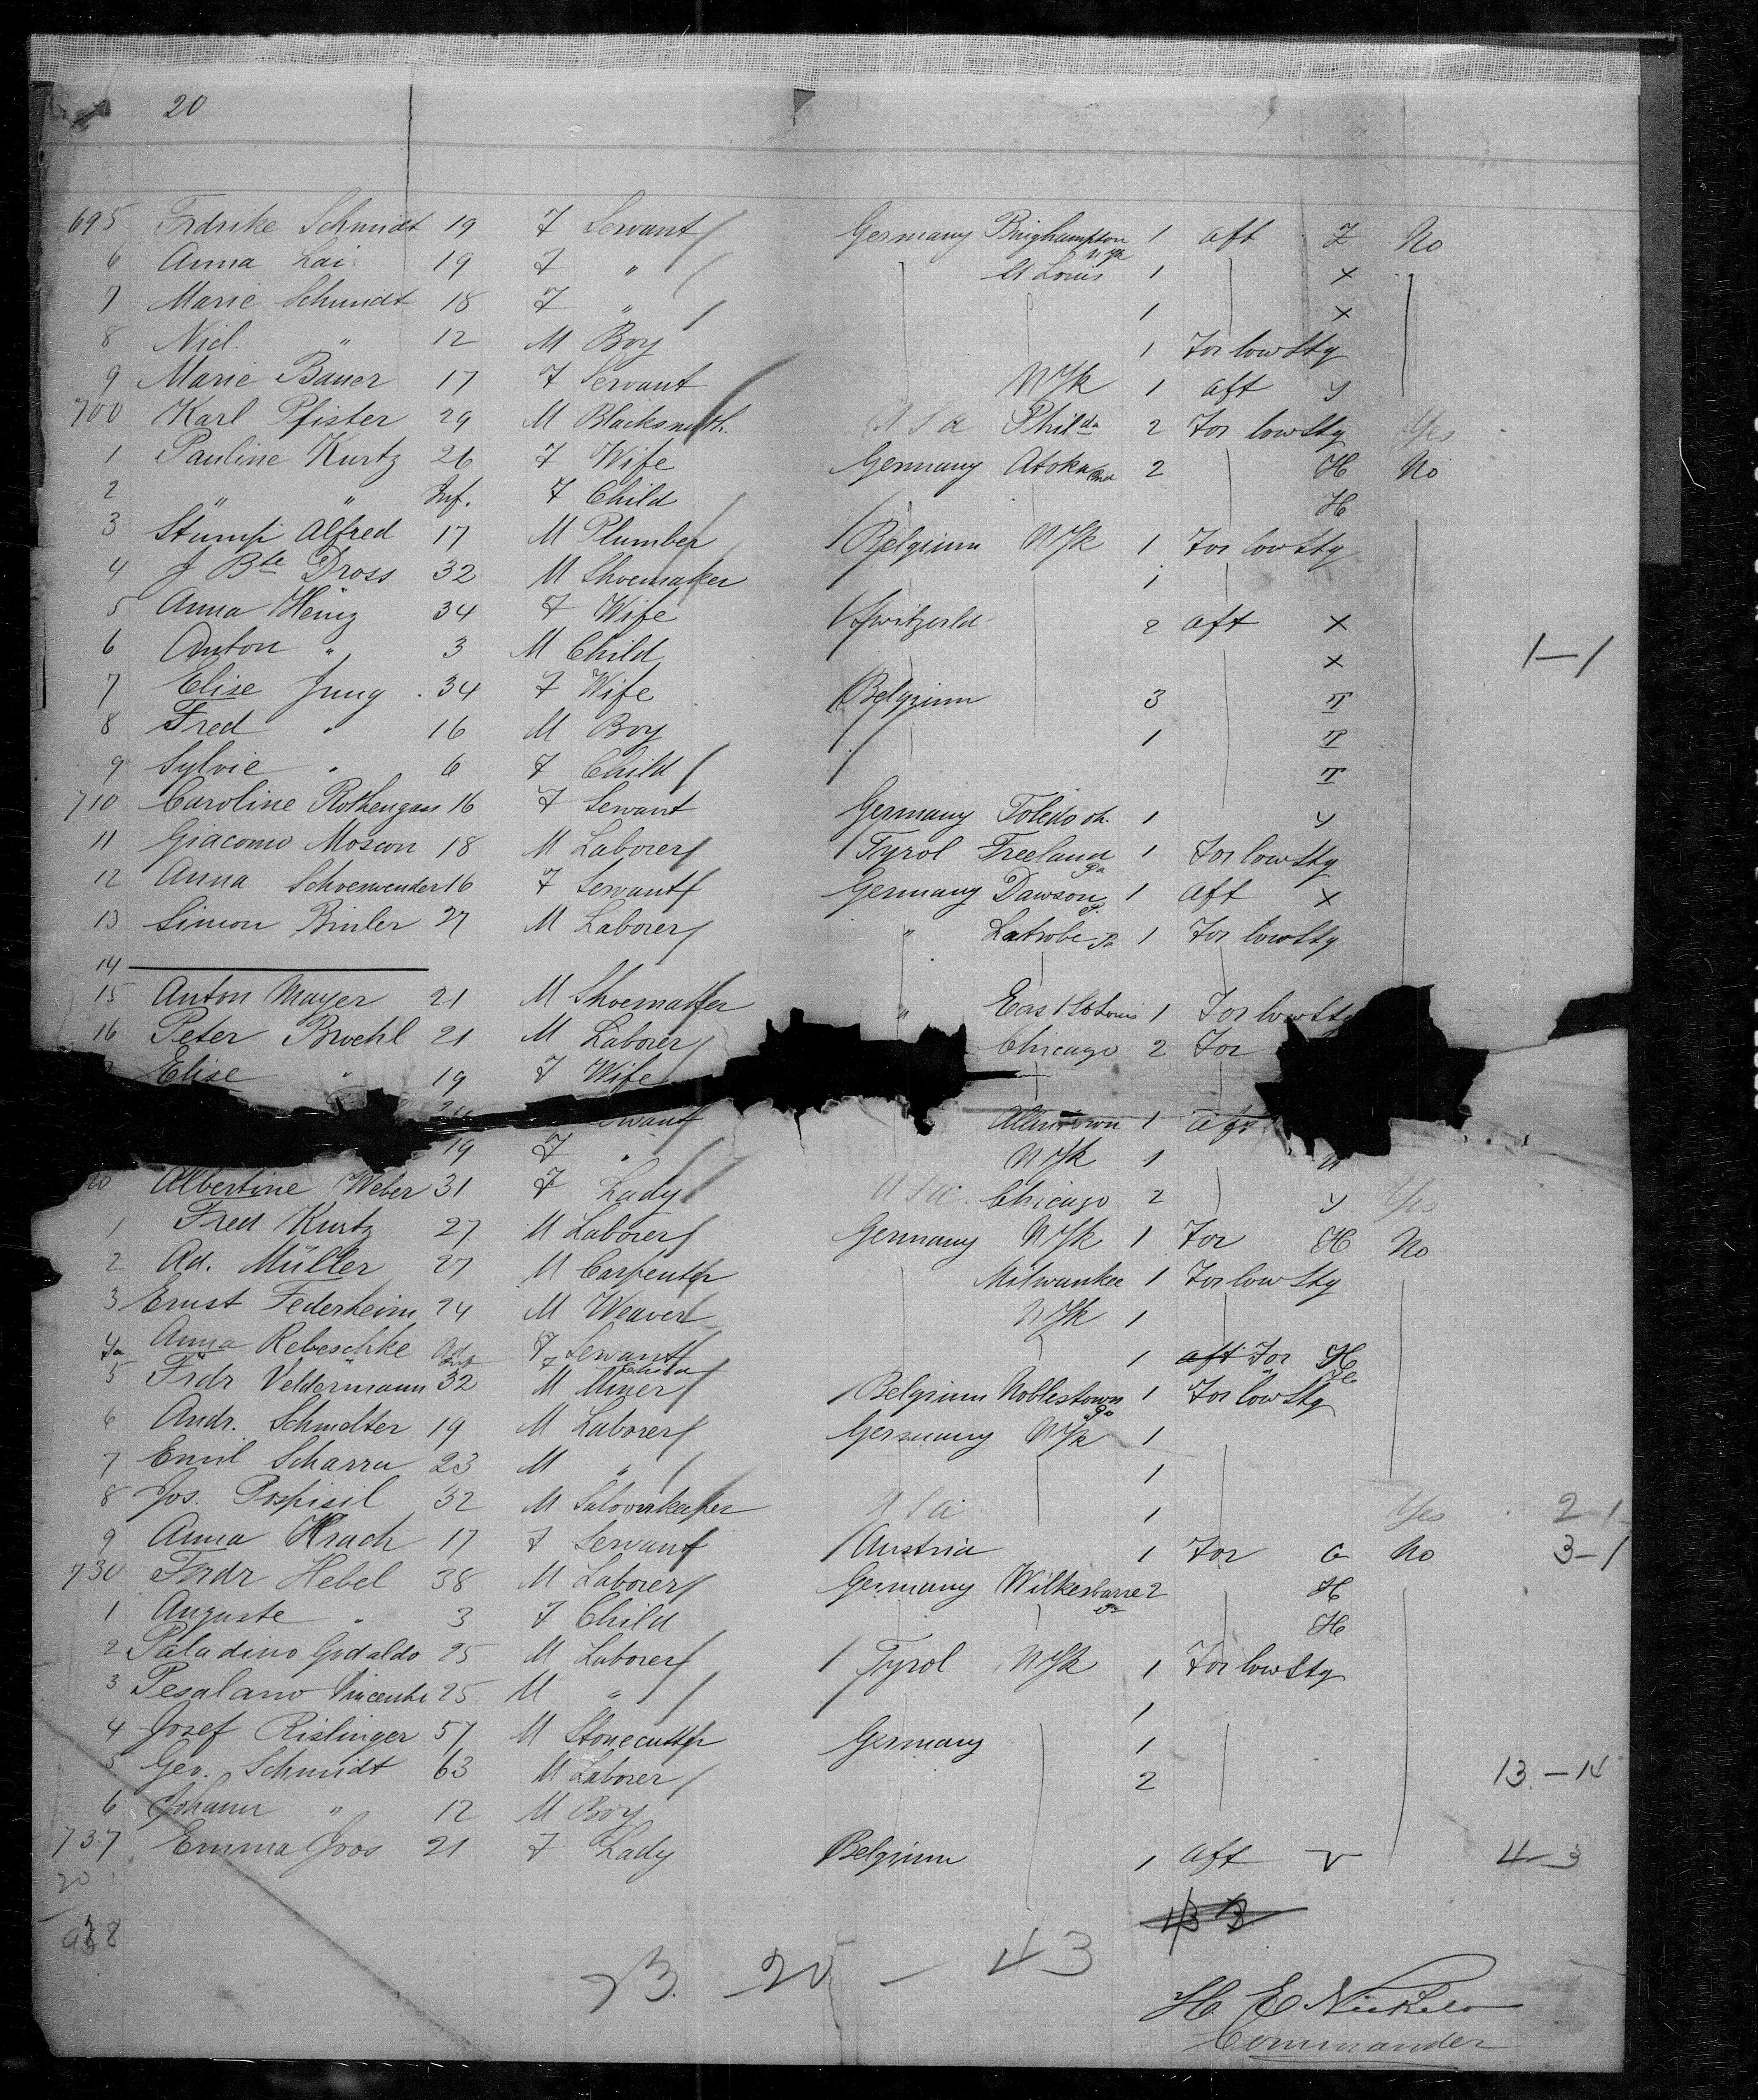 20
695 Frdrike Schmidt 19 F Servant Germany Binghampton N.Yk 1 aft Z No
6 Anna Lai 19 F " St Louis 1 x
7 Marie Schmidt 18 F " 1 x
8 Nicl. " 12 M Boy 1 For low Stg
9 Marie Bauer 17 F Servant N Yk 1 aft y
700 Karl Pfister 29 M Blacksmith. U S a Philda 2 For low Stg Yes
1 Pauline Kurtz 26 F Wife Germany Atoka 2 H No
2 " " Inf. F Child H
3 Stump Alfred 17 M Plumber Belgium N Yk 1 For low Stg
4 J Bte Dross 32 M Shoemaker 1
5 Anna Heinz 34 F Wife Switzerld 2 aft x
6 Anton " 3 M Child x 1-1
7 Elise Jung 34 F Wife Belgium 3 T
8 Fred " 16 M Boy 1 T
9 Sylvie " 6 F Child T
710 Caroline Rothengass 16 F Servant Germany Toledo oh. 1 y
11 Giacomo Moscon 18 M Laborer Tyrol Freeland Pa 1 For low Stg
12 Anna Schoenwender 16 F Servant Germany Dawson P. 1 aft x
13 Simon Binler 27 M Laborer " Latrobe Pa 1 For low Stg
14
15 Anton Mayer 21 M Shoemaker " East St Louis 1 For low Stg
16 Peter Broehl 21 M Laborer Chicago 2 For
Elise " 19 F Wife
Allentown 1 aft
19 F " N Yk 1
20 Albertine Weber 31 F Lady U S a. Chicago 2 y Yes
1 Fred Kurtz 27 M Laborer Germany N Yk 1 For H No
2 Ad. Müller 27 M Carpenter Milwaukee 1 For low Stg
3 Ernst Federheim 24 M Weaver N Yk 1
4a Anna Rebeschke F Servant 1 aft For H
" F Child " H
5 Frdr Veldermann 32 M Miner Belgium Noblestown Pa 1 For low Stg
6 Andr. Schmelter 19 M Laborer Germany N Yk 1
7 Emil Scharru 23 M " 1
8 Jos. Pospisil 32 M Saloonkeeper U S a 1 Yes 2-1
9 Anna Hrach 17 F Servant Austria 1 For G No 3-1
730 Frdr Hebel 38 M Laborer Germany Wilkesbarre Pa 2 H
1 Auguste " 3 F Child H
2 Paladino Godaldo 25 M Laborer Tyrol N Yk 1 For low Stg
3 Pesalano Vincente 25 M " 1
4 Josef Rislinger 57 M Stonecutter Germany 1
5 Geo. Schmidt 63 M Laborer 2 13.-14
6 Johann " 12 M Boy
737 Emma Joos 21 F Lady Belgium 1 aft v 4-3
20
23. 20 - 43
H. E. Nickels
Commander